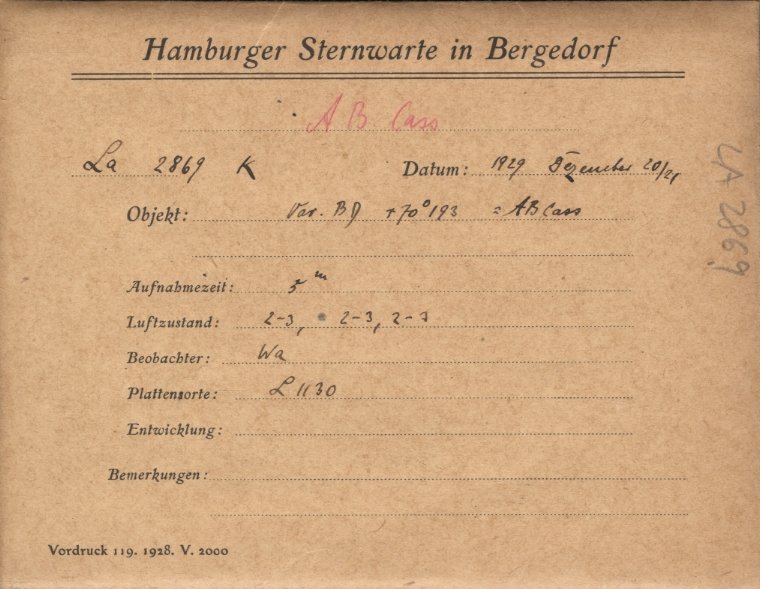 Hamburger Sternwarte in Bergedorf
AB Cass
La 2869 K
Datum: 1929 Dezember 20/21
Objekt: Var. BD +70° 193 = AB Cass
Aufnahmezeit: 5 m
Luftzustand: 2-3, 2-3, 2-3
Beobachter: Wa
Plattensorte: L 1130
Entwicklung:
Bemerkungen:
Vordruck 119. 1928. V. 2000
LA 2869